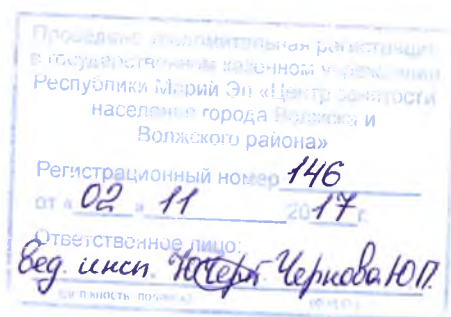 Проведена уведомительная регистрация
в государственном казенном учреждении
Республики Марий Эл «Центр занятости
населения города Волжска и
Волжского района»
Регистрационный номер 146
от « 02 » 11 2017 г.
Ответственное лицо:
Вед. инсп. Чернова Ю.П.
должность подпись (Ф.И.О.)